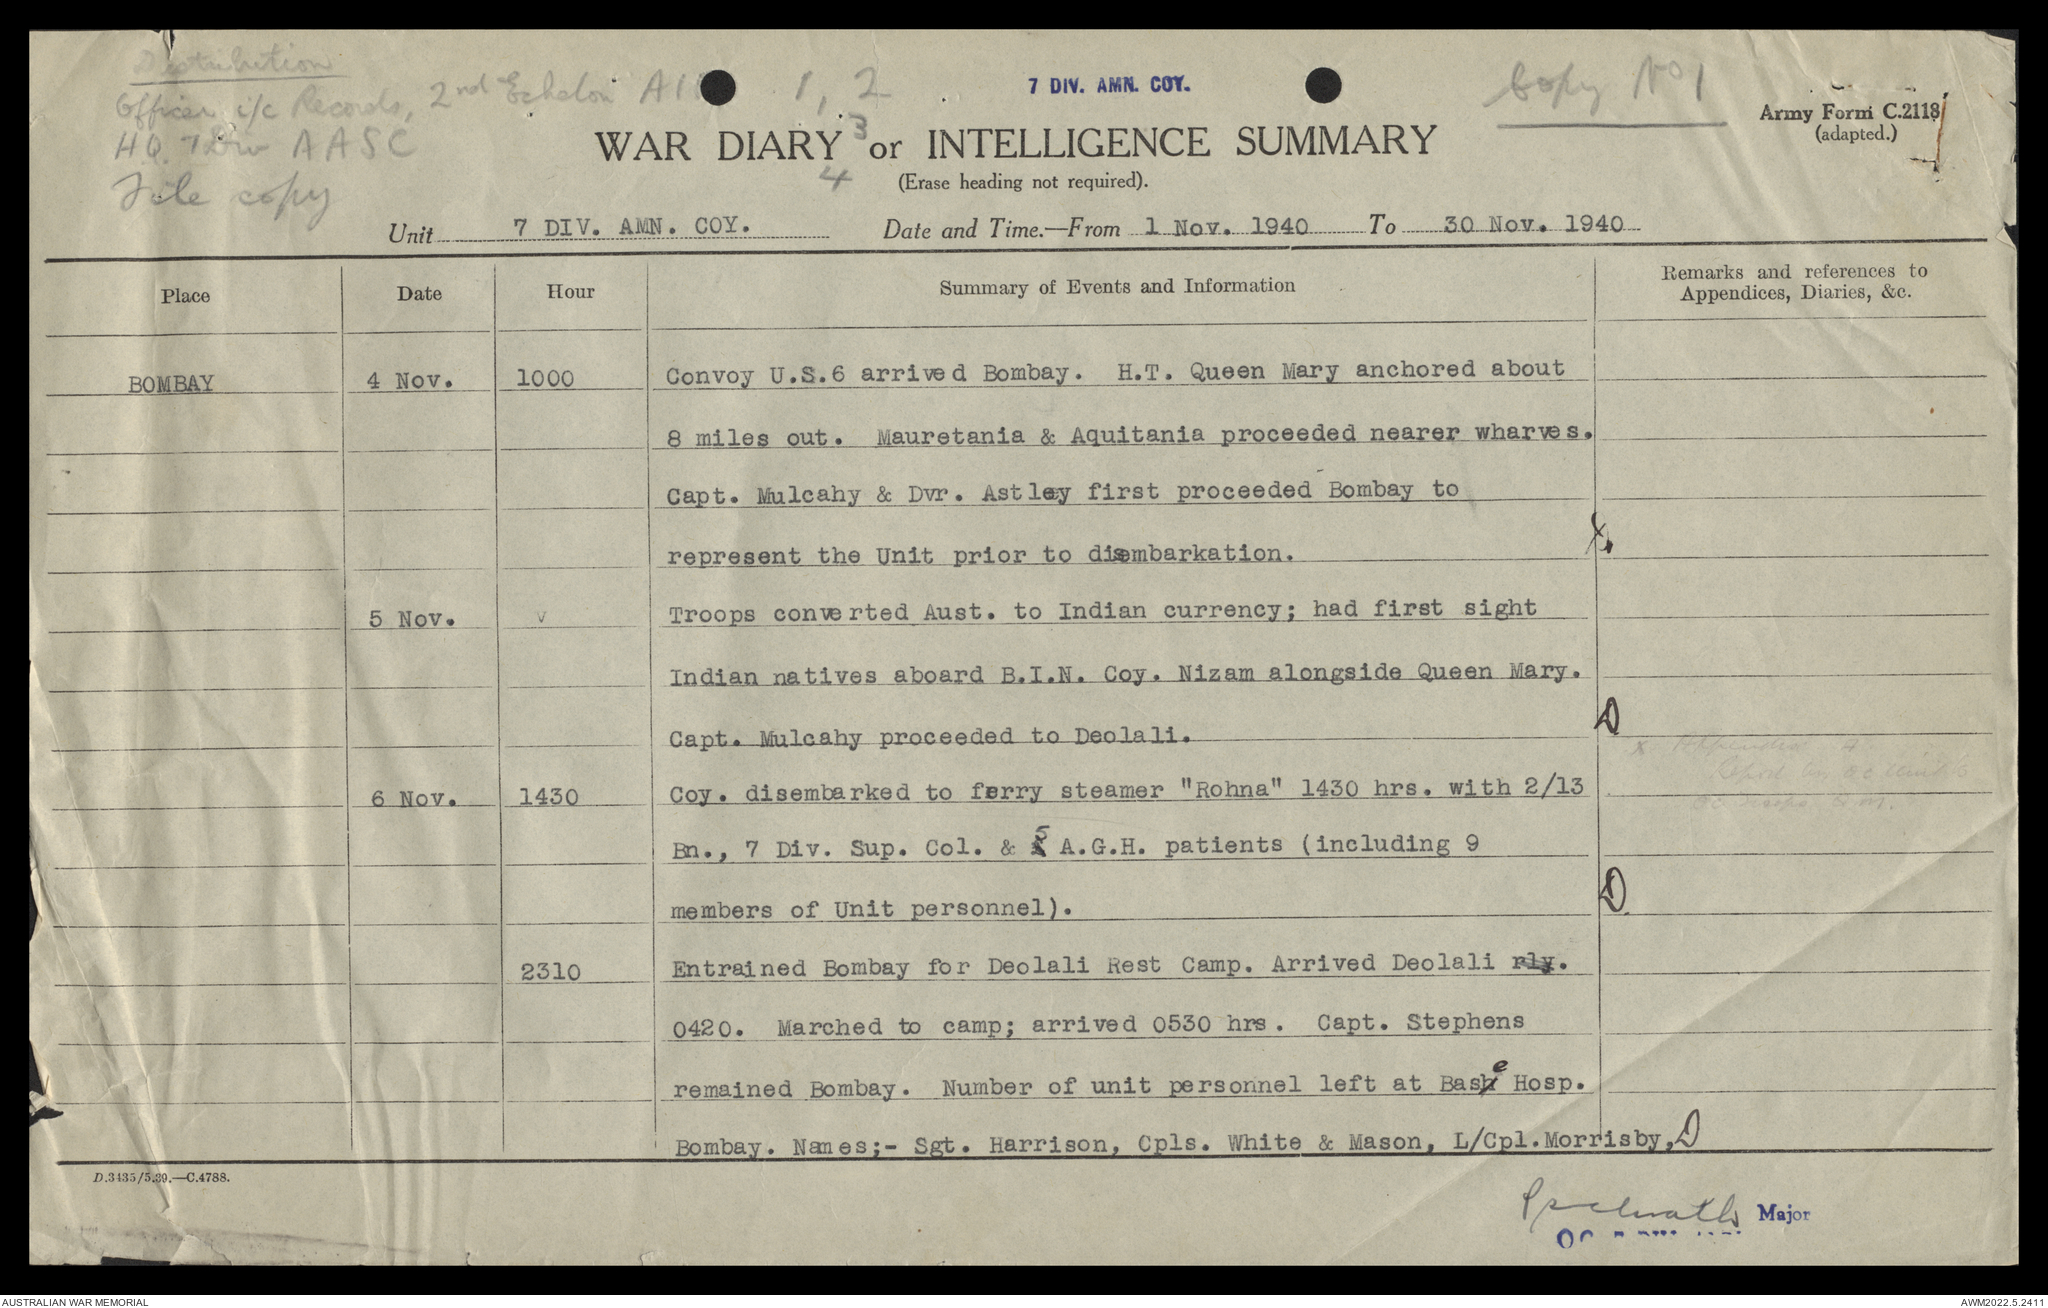 Distribution
Officer i/c Records, 2nd Echelon AIF 1, 2
HQ. 7 Div AASC 3
File copy 4
7 DIV. AMN. COY.
Copy No 1
Army Form C.2118
(adapted.)
WAR DIARY or INTELLIGENCE SUMMARY
(Erase heading not required).
Unit 7 DIV. AMN. COY. Date and Time.—From 1 Nov. 1940 To 30 Nov. 1940
Place Date Hour Summary of Events and Information Remarks and references to
Appendices, Diaries, &c.
BOMBAY 4 Nov. 1000 Convoy U.S.6 arrived Bombay. H.T. Queen Mary anchored about
8 miles out. Mauretania & Aquitania proceeded nearer wharves.
Capt. Mulcahy & Dvr. Astley first proceeded Bombay to
represent the Unit prior to disembarkation. X.
5 Nov. Troops converted Aust. to Indian currency; had first sight
Indian natives aboard B.I.N. Coy. Nizam alongside Queen Mary.
Capt. Mulcahy proceeded to Deolali. D
x Appendix
6 Nov. 1430 Coy. disembarked to ferry steamer "Rohna" 1430 hrs. with 2/13
Bn., 7 Div. Sup. Col. & 5 A.G.H. patients (including 9
members of Unit personnel). D.
2310 Entrained Bombay for Deolali Rest Camp. Arrived Deolali rly.
0420. Marched to camp; arrived 0530 hrs. Capt. Stephens
remained Bombay. Number of unit personnel left at Base Hosp.
Bombay. Names;- Sgt. Harrison, Cpls. White & Mason, L/Cpl.Morrisby, D
D.3435/5.39.—C.4788.
Major
OC
AUSTRALIAN WAR MEMORIAL
AWM2022.5.2411